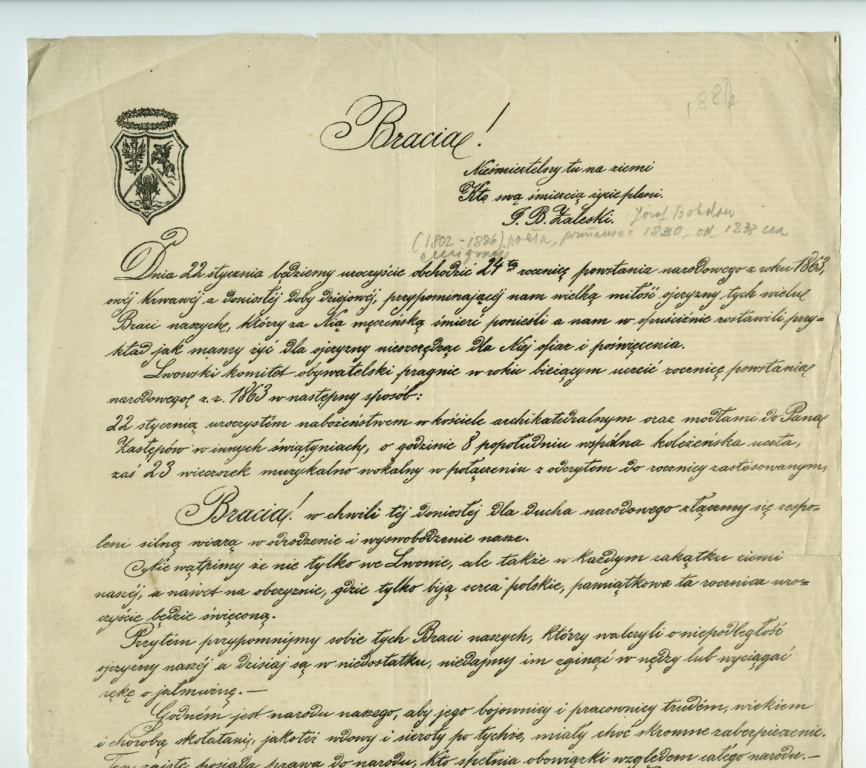 1886
Bracia!
Nieśmiertelny tu na ziemi
Kto swą śmiercią życie pleni.
J. B. Zaleski. Józef Bohdan
(1802-1886), poeta, 1830, od 183 na
emigracji
Dnia 22 stycznia będziemy uroczyście obchodzić 24tą rocznicę powstania narodowego z roku 1863,
owéj krwawéj a doniosłéj doby dziejowéj, przypominającéj nam wielką miłość ojczyzny tych wielu
Braci naszych, którzy za Nią męczeńską śmierć ponieśli a nam w spuściźnie zostawili przy-
kład jak mamy żyć dla ojczyzny nieszczędząc dla Niéj ofiar i poświęcenia.
Lwowski komitet obywatelski pragnie w roku bieżącym uczcić rocznicę powstania
narodowego z r. 1863 w następny sposób:
22 stycznia uroczystém nabożeństwem w kościele archikatedralnym oraz modłami do Pana
Zastępów w innych świątyniach, o godzinie 8 popołudniu wspólna koleżeńska uczta,
zaś 23 wieczorek muzykalno wokalny w połączeniu z odczytem do rocznicy zastosowanym,
Bracia! w chwili téj doniosłéj dla ducha narodowego złączmy się zespo-
leni silną wiarą w odrodzenie i wyswobodzenie nasze.
Nie wątpimy że nie tylko we Lwowie, ale także w każdym zakątku ziemi
naszéj, a nawet na obczyznie, gdzie tylko biją serca polskie, pamiątkowa ta rocznica uro-
czyście będzie święconą.
Przytém przypomnijmy sobie tych Braci naszych, którzy walczyli o niepodległość
ojczyzny naszéj a dzisiaj są w niedostatku, niedajmy im zginąć w nędzy lub wyciągać
rękę o jałmużnę. —
Godném jest narodu naszego, aby jego bojownicy i pracownicy trudem, wiekiem
i chorobą skołatani, jakoteż wdowy i sieroty po tychże, miały choć skromne zabezpieczenie.
Ten zaiste posiada prawa do narodu, kto spełnia obowiązki względem całego narodu. —